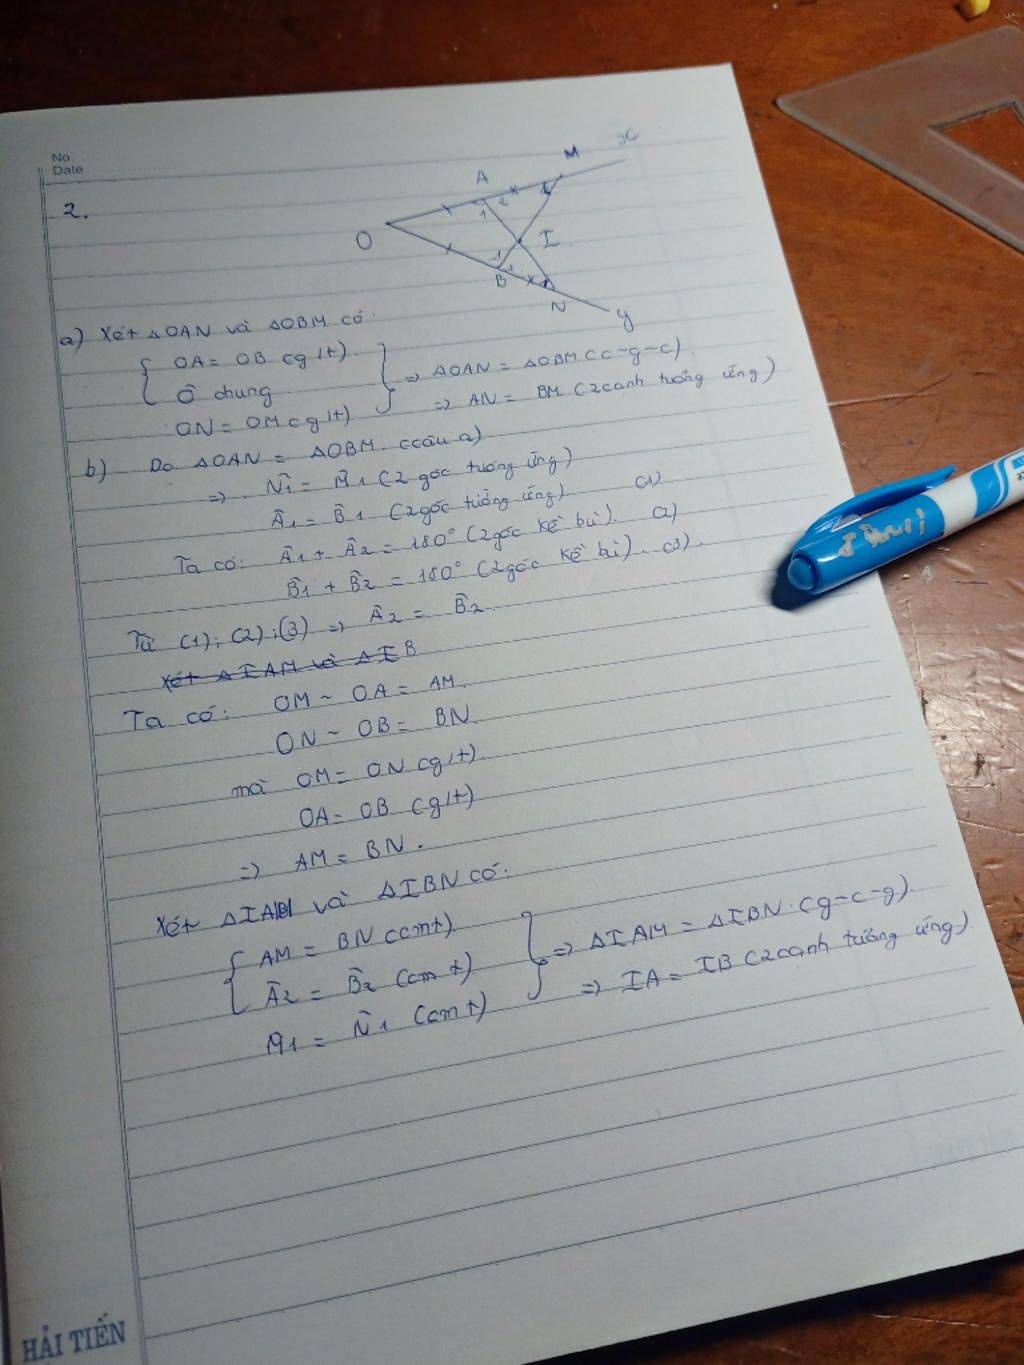 No.
Date
2.
x
M
A
1 2
1
O
I
1
B 1
1
N
y
a) Xét △OAN và △OBM có.
OA = OB (g/t)
Ô chung
ON = OM (g/t)
=> △OAN = △OBM (c-g-c)
=> AN = BM (2 cạnh tương ứng)
b) Do △OAN = △OBM (câu a)
=> N̂1 = M̂1 (2 góc tương ứng)
Â1 = B̂1 (2 góc tương ứng) (1)
Ta có: Â1 + Â2 = 180° (2 góc kề bù). (2)
B̂1 + B̂2 = 180° (2 góc kề bù). (3).
Từ (1); (2); (3) => Â2 = B̂2.
Xét △IAM và △IB
Ta có: OM - OA = AM.
ON - OB = BN.
mà OM = ON (g/t).
OA = OB (g/t)
=> AM = BN.
Xét △IAM và △IBN có:
AM = BN (cmt)
Â2 = B̂2 (cmt)
M̂1 = N̂1 (cmt)
=> △IAM = △IBN (g-c-g).
=> IA = IB (2 cạnh tương ứng)
HẢI TIẾN